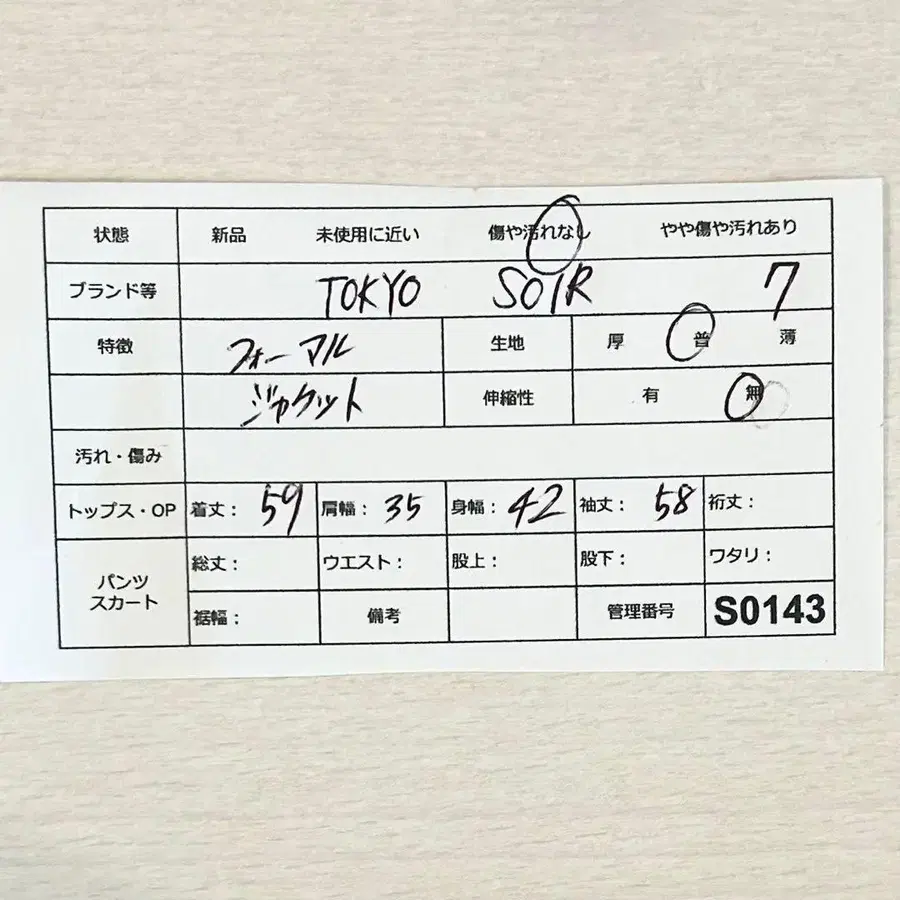 状態 新品 未使用に近い 傷や汚れなし やや傷や汚れあり
ブランド等 TOKYO SOIR 7
特徴 フォーマル 生地 厚 普 薄
ジャケット 伸縮性 有 無
汚れ・傷み
トップス・OP 着丈: 59 肩幅: 35 身幅: 42 袖丈: 58 裄丈:
パンツ
スカート
総丈: ウエスト: 股上: 股下: ワタリ:
裾幅: 備考 管理番号 S0143